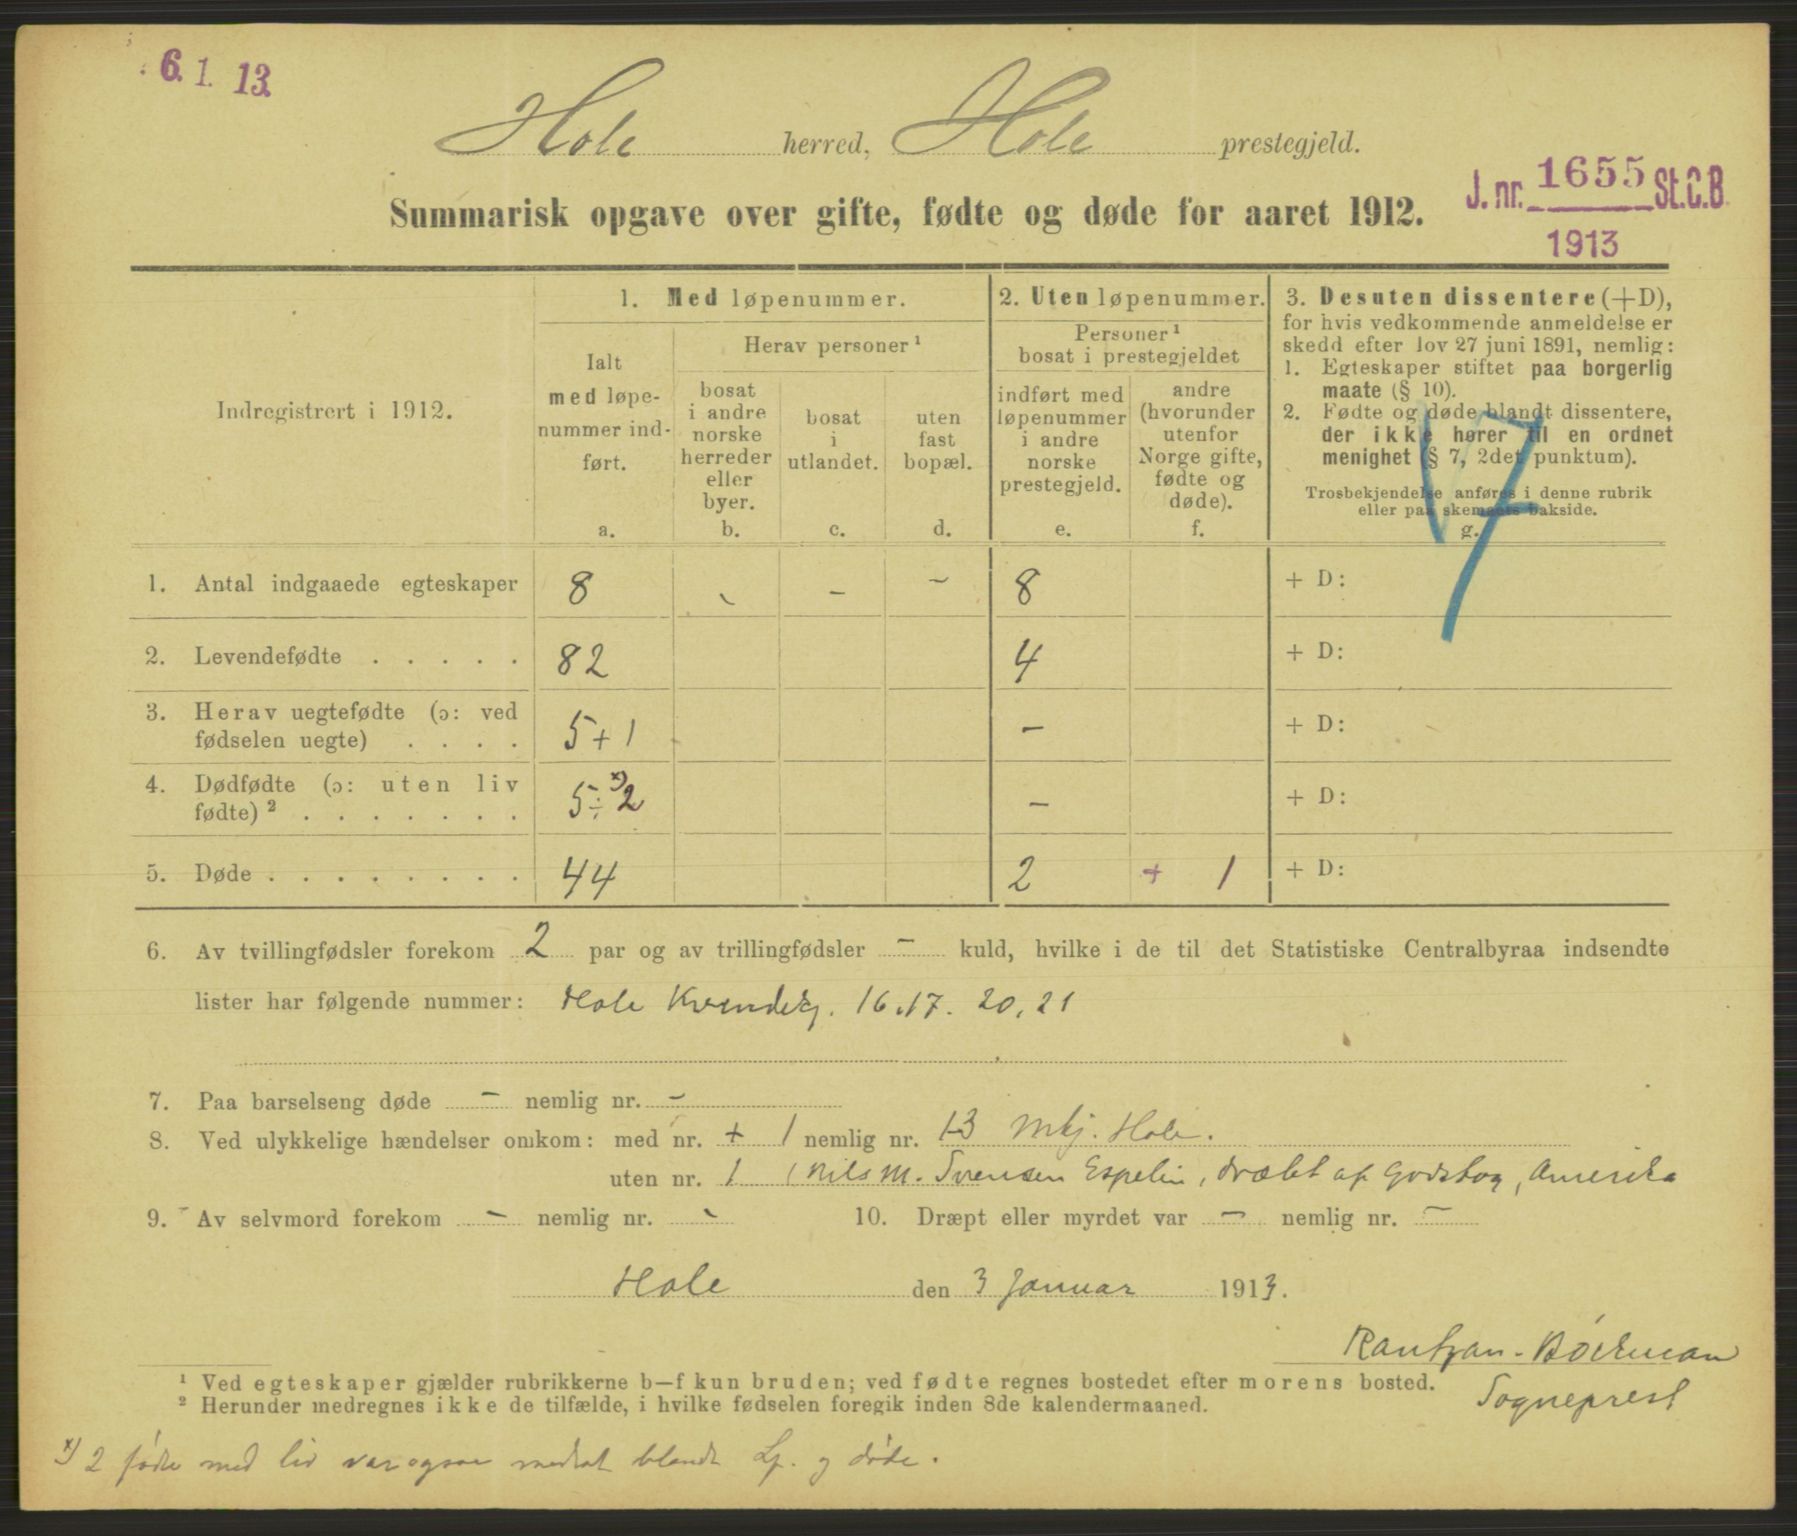 6. 1. 13.
Hole herred, Hole prestegjeld.
J. nr. 1655 St.C.B.
1913
Summarisk opgave over gifte, fødte og døde for aaret 1912.
Indregistrert i 1912.
1. Med løpenummer.
Ialt
med løpe-
nummer ind-
ført.
a.
Herav personer ¹
bosat
i andre
norske
herreder
eller
byer.
b.
bosat
i
utlandet.
c.
uten
fast
bopæl.
d.
2. Uten løpenummer.
Personer ¹
bosat i prestegjeldet
indført med
løpenummer
i andre
norske
prestegjeld.
e.
andre
(hvorunder
utenfor
Norge gifte,
fødte og
døde).
f.
3. Desuten dissentere (+D),
for hvis vedkommende anmeldelse er
skedd efter lov 27 juni 1891, nemlig:
1. Egteskaper stiftet paa borgerlig
maate (§ 10).
2. Fødte og døde blandt dissentere,
der ikke hører til en ordnet
menighet (§ 7, 2det punktum).
Trosbekjendelse anføres i denne rubrik
eller paa skemaets bakside.
g.
1. Antal indgaaede egteskaper 8 - - - 8 + D:
2. Levendefødte . . . . . 82 4 + D:
3. Herav uegtefødte (ɔ: ved
fødselen uegte) . . . . 5+1 - + D:
4. Dødfødte (ɔ: uten liv
fødte) ² . . . . . . . 5÷ˣ⁾2 - + D:
5. Døde . . . . . . . . 44 2 + 1 + D:
6. Av tvillingfødsler forekom 2 par og av trillingfødsler - kuld, hvilke i de til det Statistiske Centralbyraa indsendte
lister har følgende nummer: Hole Kvindekj. 16.17. 20, 21
7. Paa barselseng døde - nemlig nr. -
8. Ved ulykkelige hændelser omkom: med nr. + 1 nemlig nr. 13 Mkj. Hole.
uten nr. 1 Nils M. Svensen Espelin, dræbt af Godstog, Amerika
9. Av selvmord forekom - nemlig nr. - 10. Dræpt eller myrdet var - nemlig nr. -
Hole den 3 Januar 1913.
Rantzau-Bóckman
Sogneprest
¹ Ved egteskaper gjælder rubrikkerne b—f kun bruden; ved fødte regnes bostedet efter morens bosted.
² Herunder medregnes ikke de tilfælde, i hvilke fødselen foregik inden 8de kalendermaaned.
ˣ⁾ 2 fødte med liv var ogsaa medtat blandt Lf. og døde.